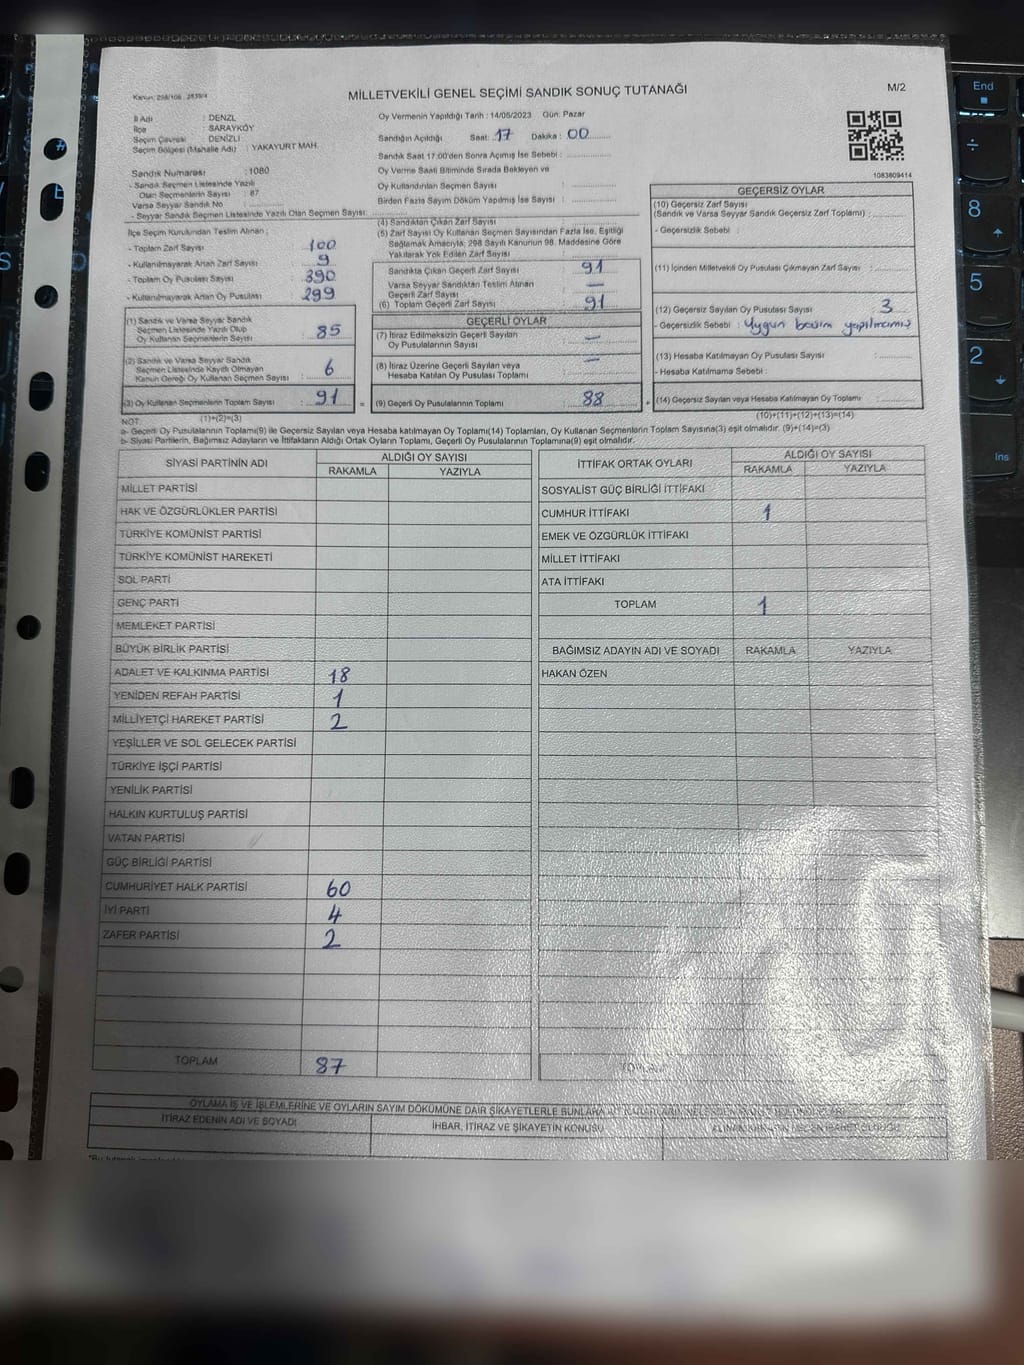 Kanun: 298/106 , 2839/4
MİLLETVEKİLİ GENEL SEÇİMİ SANDIK SONUÇ TUTANAĞI
M/2
İl Adı : DENZL
İlçe : SARAYKÖY
Seçim Çevresi : DENİZLİ
Seçim Bölgesi (Mahalle Adı) : YAKAYURT MAH.
Sandık Numarası : 1080
- Sandık Seçmen Listesinde Yazılı
Olan Seçmenlerin Sayısı : 87
Varsa Seyyar Sandık No :
- Seyyar Sandık Seçmen Listesinde Yazılı Olan Seçmen Sayısı:
Oy Vermenin Yapıldığı Tarih : 14/05/2023 Gün: Pazar
Sandığın Açıldığı Saat: 17 Dakika : 00
Sandık Saat 17.00'den Sonra Açımış İse Sebebi :
Oy Verme Saati Bitiminde Sırada Bekleyen ve
Oy Kullandırılan Seçmen Sayısı :
Birden Fazla Sayım Döküm Yapılmış İse Sayısı :
1083809414
İlçe Seçim Kurulundan Teslim Alınan ;
- Toplam Zarf Sayısı : 100
- Kullanılmayarak Artan Zarf Sayısı : 9
- Toplam Oy Pusulası Sayısı : 390
- Kullanılmayarak Artan Oy Pusulası : 299
(1) Sandık ve Varsa Seyyar Sandık
Seçmen Listesinde Yazılı Olup
Oy Kullanan Seçmenlerin Sayısı : 85
(2) Sandık ve Varsa Seyyar Sandık
Seçmen Listesinde Kayıtlı Olmayan
Kanun Gereği Oy Kullanan Seçmen Sayısı : 6
(3) Oy Kullanan Seçmenlerin Toplam Sayısı : 91
(4) Sandıktan Çıkan Zarf Sayısı
(5) Zarf Sayısı Oy Kullanan Seçmen Sayısından Fazla İse, Eşitliği
Sağlamak Amacıyla, 298 Sayılı Kanunun 98. Maddesine Göre
Yakılarak Yok Edilen Zarf Sayısı :
Sandıkta Çıkan Geçerli Zarf Sayısı : 91
Varsa Seyyar Sandıktan Teslim Alınan
Geçerli Zarf Sayısı : —
(6) Toplam Geçerli Zarf Sayısı : 91
GEÇERLİ OYLAR
(7) İtiraz Edilmeksizin Geçerli Sayılan
Oy Pusulalarının Sayısı : —
(8) İtiraz Üzerine Geçerli Sayılan veya
Hesaba Katılan Oy Pusulası Toplamı : —
= (9) Geçerli Oy Pusulalarının Toplamı : 88
GEÇERSİZ OYLAR
(10) Geçersiz Zarf Sayısı
(Sandık ve Varsa Seyyar Sandık Geçersiz Zarf Toplamı) :
- Geçersizlik Sebebi :
(11) İçinden Milletvekili Oy Pusulası Çıkmayan Zarf Sayısı :
(12) Geçersiz Sayılan Oy Pusulası Sayısı : 3
- Geçersizlik Sebebi : Uygun basım yapılmamış
(13) Hesaba Katılmayan Oy Pusulası Sayısı :
- Hesaba Katılmama Sebebi :
+ (14) Geçersiz Sayılan veya Hesaba Katılmayan Oy Toplamı :
NOT: (1)+(2)=(3)
(10)+(11)+(12)+(13)=(14)
a- Geçerli Oy Pusulalarının Toplamı(9) ile Geçersiz Sayılan veya Hesaba katılmayan Oy Toplamı(14) Toplamları, Oy Kullanan Seçmenlerin Toplam Sayısına(3) eşit olmalıdır. (9)+(14)=(3)
b- Siyasi Partilerin, Bağımsız Adayların ve İttifakların Aldığı Ortak Oyların Toplamı, Geçerli Oy Pusulalarının Toplamına(9) eşit olmalıdır.
SİYASİ PARTİNİN ADI
ALDIĞI OY SAYISI
RAKAMLA YAZIYLA
MİLLET PARTİSİ
HAK VE ÖZGÜRLÜKLER PARTİSİ
TÜRKİYE KOMÜNİST PARTİSİ
TÜRKİYE KOMÜNİST HAREKETİ
SOL PARTİ
GENÇ PARTİ
MEMLEKET PARTİSİ
BÜYÜK BİRLİK PARTİSİ
ADALET VE KALKINMA PARTİSİ 18
YENİDEN REFAH PARTİSİ 1
MİLLİYETÇİ HAREKET PARTİSİ 2
YEŞİLLER VE SOL GELECEK PARTİSİ
TÜRKİYE İŞÇİ PARTİSİ
YENİLİK PARTİSİ
HALKIN KURTULUŞ PARTİSİ
VATAN PARTİSİ
GÜÇ BİRLİĞİ PARTİSİ
CUMHURİYET HALK PARTİSİ 60
İYİ PARTİ 4
ZAFER PARTİSİ 2
TOPLAM 87
İTTİFAK ORTAK OYLARI
ALDIĞI OY SAYISI
RAKAMLA YAZIYLA
SOSYALİST GÜÇ BİRLİĞİ İTTİFAKI
CUMHUR İTTİFAKI 1
EMEK VE ÖZGÜRLÜK İTTİFAKI
MİLLET İTTİFAKI
ATA İTTİFAKI
TOPLAM 1
BAĞIMSIZ ADAYIN ADI VE SOYADI RAKAMLA YAZIYLA
HAKAN ÖZEN
TOPLAM
OYLAMA İŞ VE İŞLEMLERİNE VE OYLARIN SAYIM DÖKÜMÜNE DAİR ŞİKAYETLERLE BUNLARA
İTİRAZ EDENİN ADI VE SOYADI
İHBAR, İTİRAZ VE ŞİKAYETİN KONUSU
End
8
5
2
Ins